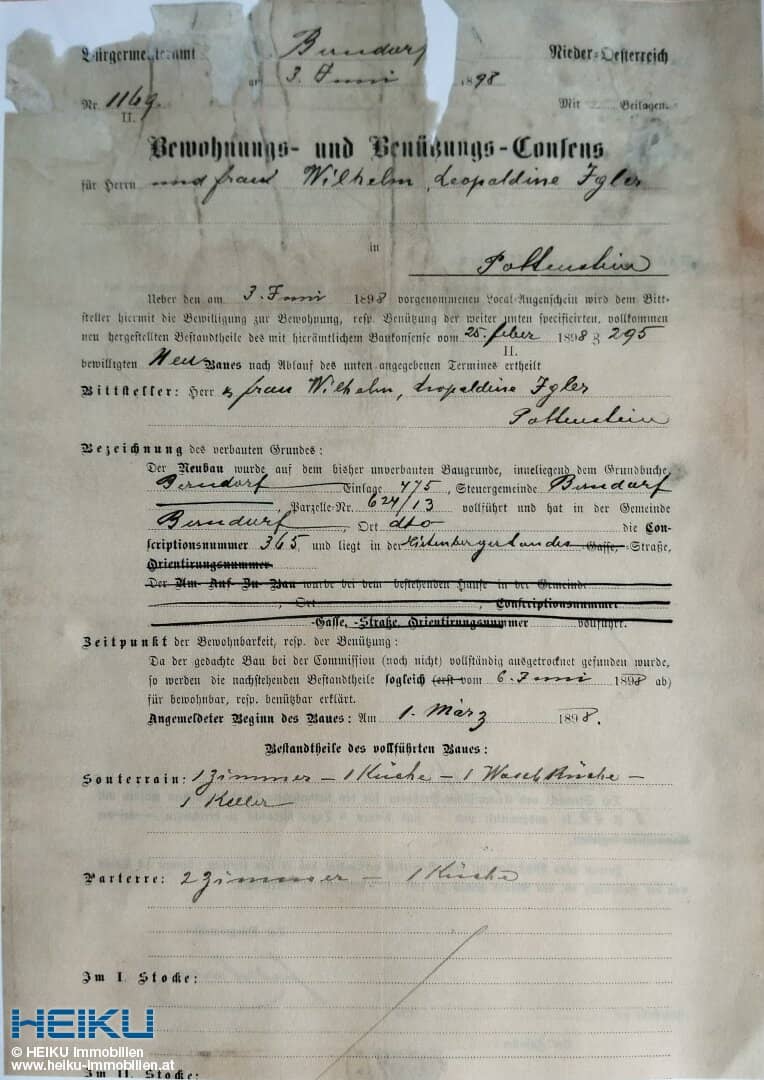 Bürgermeisteramt Berndorf Nieder-Oesterreich
am 3. Juni 1898
Nr. 1169 Mit Beilagen.
II.
Bewohnungs- und Benützungs-Consens
für Herrn und frau Wilhelm, Leopoldine Igler
in
Pottenstein
Ueber den am 3. Juni 1898 vorgenommenen Local-Augenschein wird dem Bitt-
steller hiermit die Bewilligung zur Bewohnung, resp. Benützung der weiter unten specificirten, vollkommen
neu hergestellten Bestandtheile des mit hierämtlichem Baukonsense vom 25. feber 1898 Z 295
II.
bewilligten Neu Baues nach Ablauf des unten angegebenen Termines ertheilt
Bittsteller: Herr & frau Wilhelm, Leopoldine Igler
Pottenstein
Bezeichnung des verbauten Grundes:
Der Neubau wurde auf dem bisher unverbauten Baugrunde, inneliegend dem Grundbuche
Berndorf Einlage 475, Steuergemeinde Berndorf
, Parzelle-Nr. 624/13 vollführt und hat in der Gemeinde
Berndorf, Ort dto die Con-
scriptionsnummer 365 und liegt in der Hirtenberger Gasse, -Straße,
Orientirungsnummer
Der Um- Auf- Zu- Bau wurde bei dem bestehenden Hause in der Gemeinde
, Ort , Conscriptionsnummer
-Gasse, -Straße, Orientirungsnummer vollführt.
Zeitpunkt der Bewohnbarkeit, resp. der Benützung:
Da der gedachte Bau bei der Commission (noch nicht) vollständig ausgetrocknet gefunden wurde,
so werden die nachstehenden Bestandtheile sogleich (erst vom 6. Juni 1898 ab)
für bewohnbar, resp. benützbar erklärt.
Angemeldeter Beginn des Baues: Am 1. März 1898.
Bestandtheile des vollführten Baues:
Souterrain: 1 Zimmer – 1 Küche – 1 Waschküche –
1 Keller
Parterre: 2 Zimmer – 1 Küche
Im I. Stocke:
HEIKU
© HEIKU Immobilien
www.heiku-immobilien.at
Im II. Stocke: